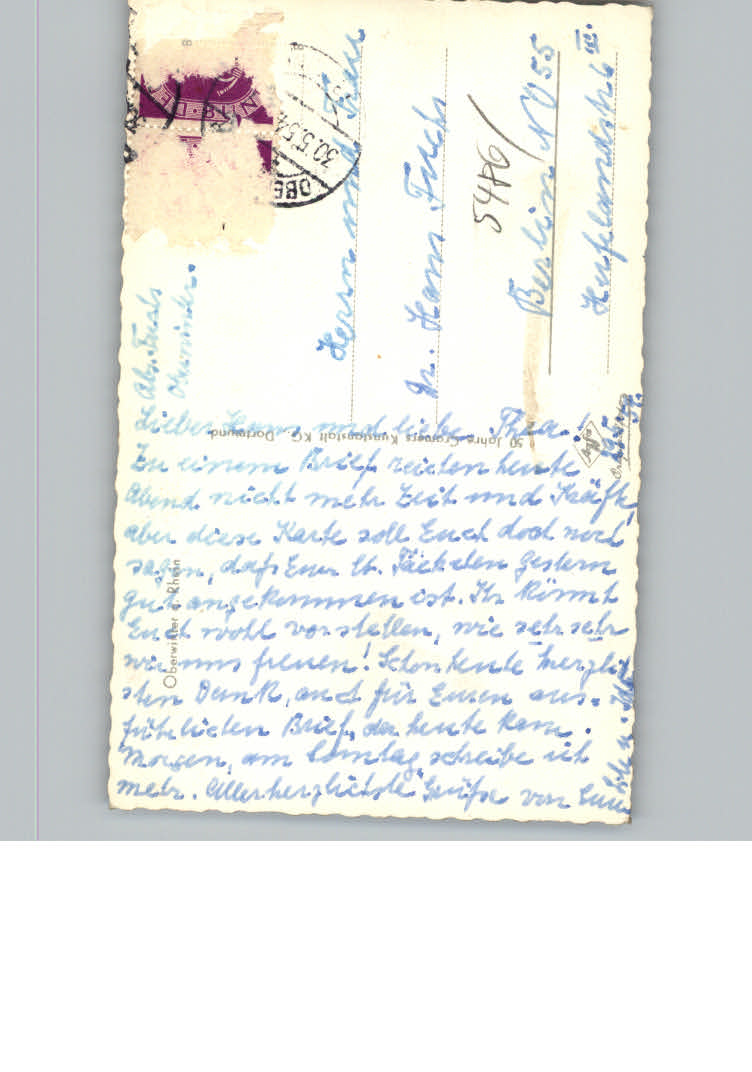 Herrn und Frau
Dr. Hans Fuchs
Berlin NO 55
Hufelandstr. 6 III.
5486/
30.5.54
OBE
Abs. Fuchs
Oberwinter.
50 Jahre Cramers Kunstanstalt KG. Dortmund
Agfa
Oberwinter a. Rhein
Lieber Hans und liebe Thea!
Zu einem Brief reichen heute
Abend nicht mehr Zeit und Kräfte,
aber diese Karte soll Euch doch noch
sagen, daß Euer lb. Päckchen gestern
gut angekommen ist. Ihr könnt
Euch wohl vorstellen, wie sehr sehr
wir uns freuen! Schon heute herzlich
sten Dank, auch für Euren aus-
führlichen Brief, der heute kam.
Morgen, am Sonntag, schreibe ich
mehr. Allerherzlichste Grüße von Eure